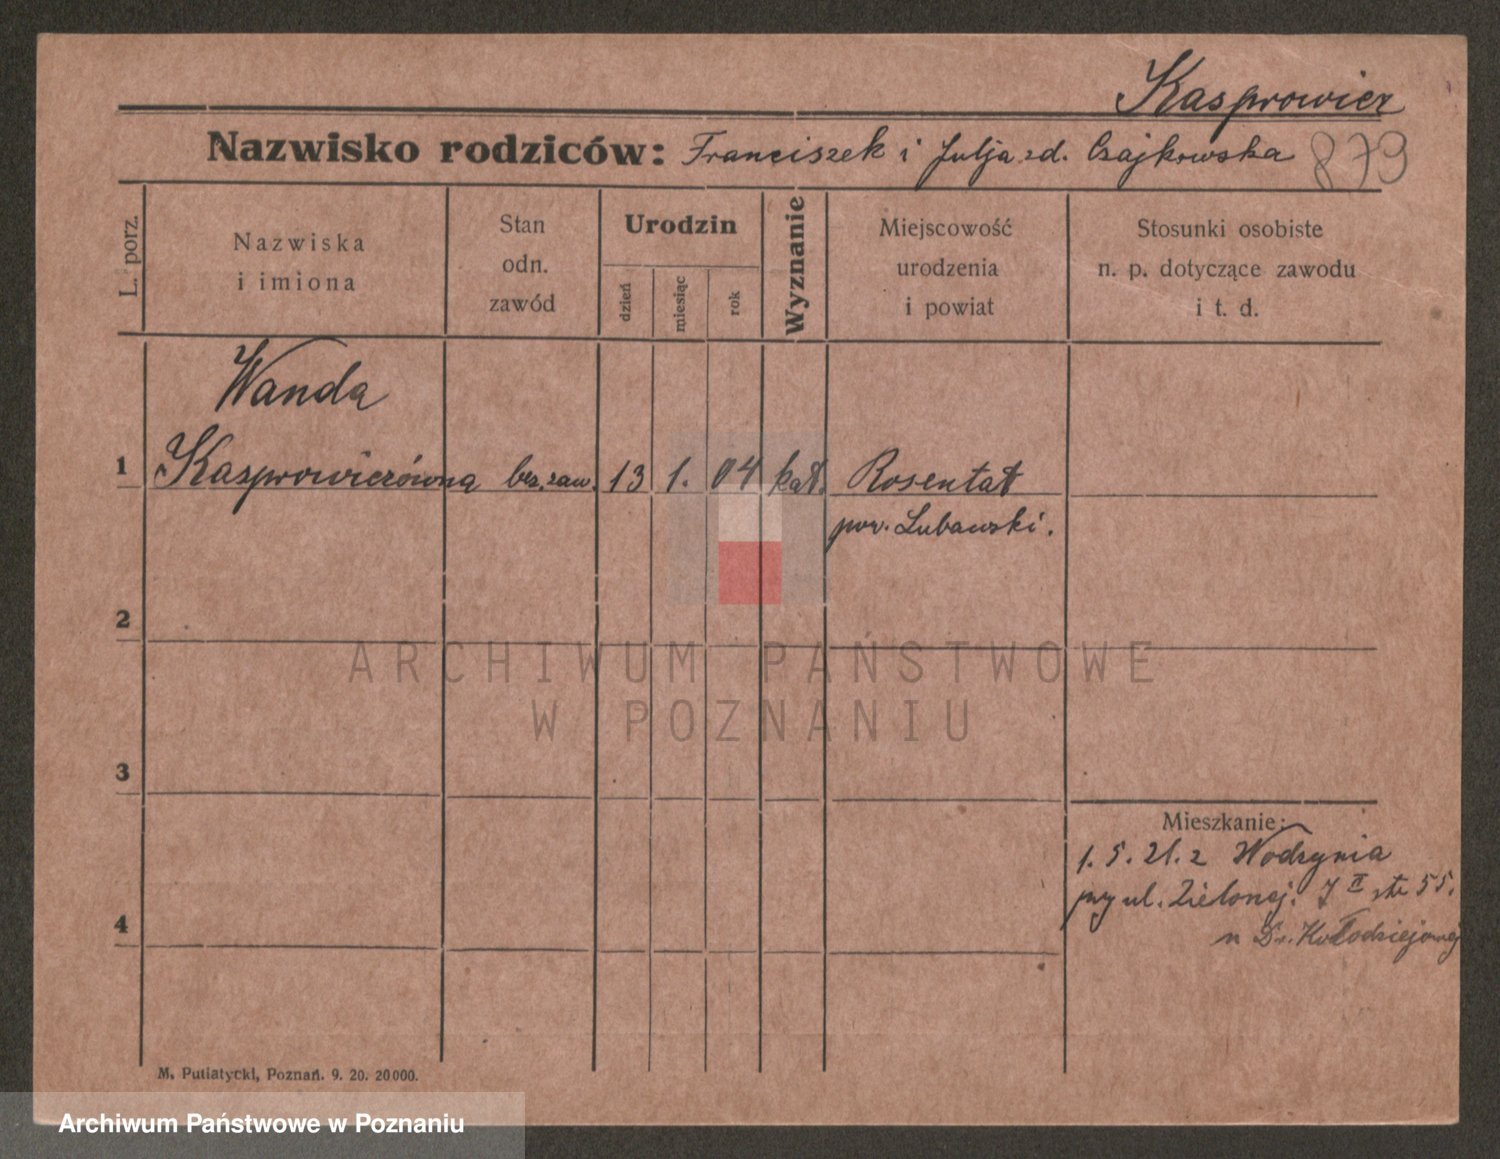 Kasprowicz
Nazwisko rodziców: Franciszek i Julja zd. Czajkowska 873
L. porz.
Nazwiska
i imiona
Stan
odn.
zawód
Urodzin
dzień
miesiąc
rok
Wyznanie
Miejscowość
urodzenia
i powiat
Stosunki osobiste
n. p. dotyczące zawodu
i t. d.
Wanda
1 Kasprowiczówna bez zaw. 13 1. 04 kat. Rosentat
pow. Lubawski.
2
ARCHIWUM PAŃSTWOWE
W POZNANIU
3
Mieszkanie:
1. 5. 21. z Wodzynia
przy ul. Zielonej. 7 II 55.
4
u Kołodziejowej
M. Putiatycki, Poznań. 9. 20. 20000.
Archiwum Państwowe w Poznaniu